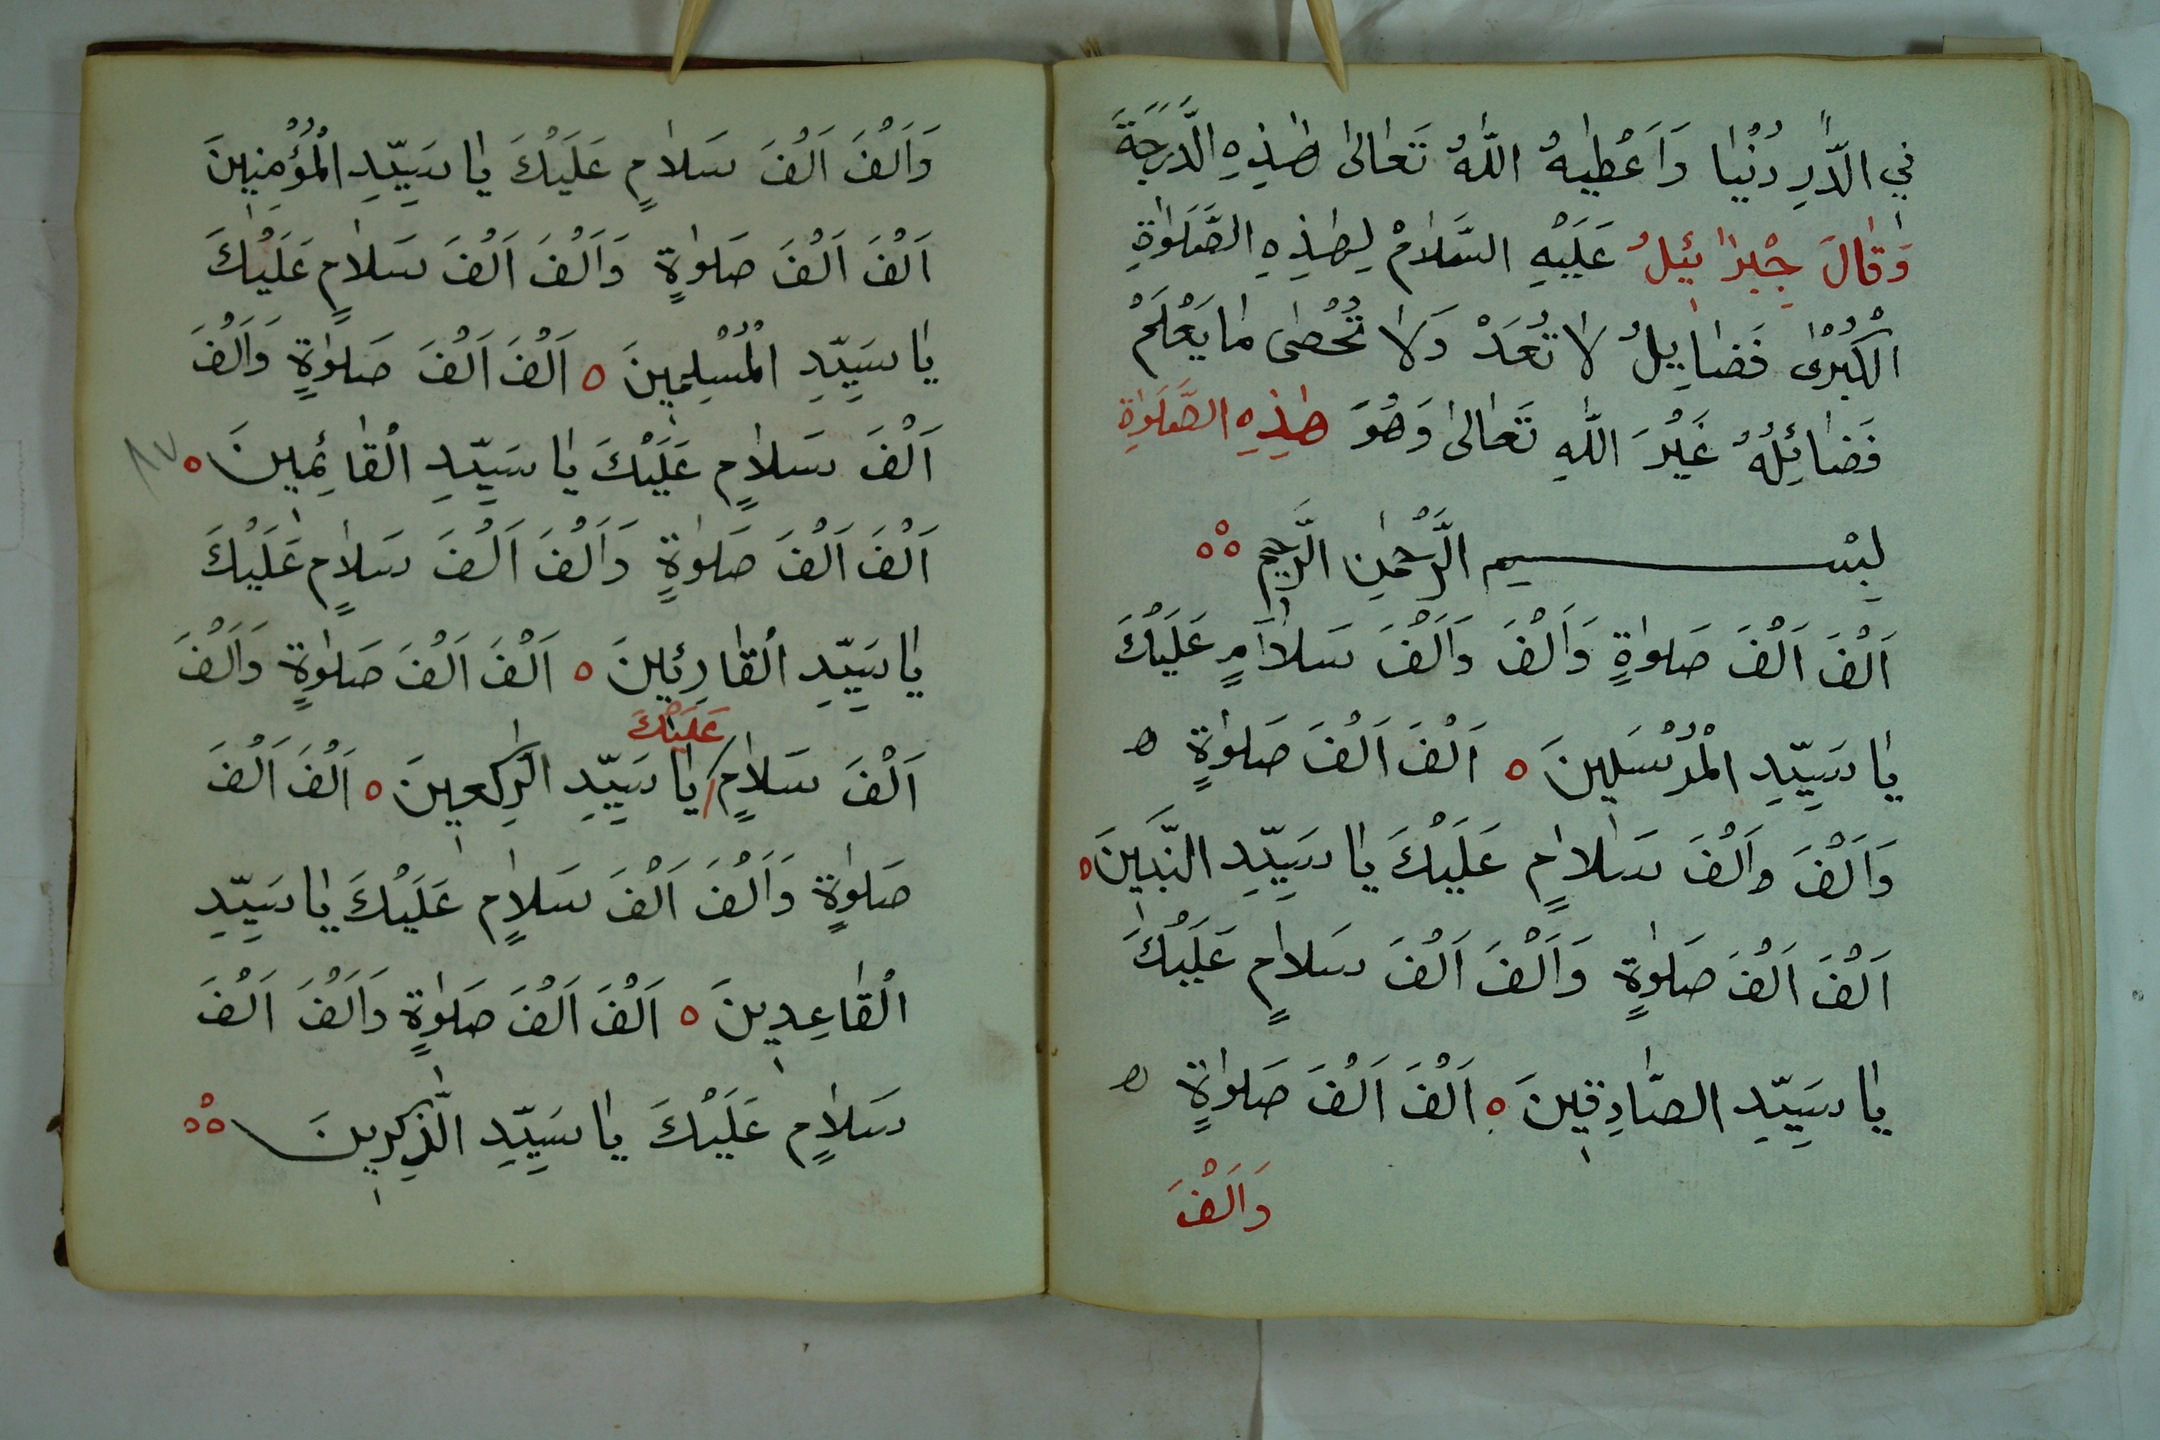 فِي الدَّرِ دُنْيَا وَاَعْطِيهُ اللّٰهُ تَعَالٰى هٰذِهِ الدَّرَجَةَ
وَقَالَ جِبْرَائِيلُ عَلَيْهِ السَّلَامُ لِهٰذِهِ الصَّلَوٰةِ
الْكُبْرٰى فَضَايِلُ لَا تُعَدْ وَلَا تُحْصٰى مَا يَعْلَمُ
فَضَائِلُهُ غَيْرَ اللّٰهِ تَعَالٰى وَهُوَ هٰذِهِ الصَّلَوٰةِ
بِسْمِ الرَّحْمٰنِ الرَّحِيمِ ه ه ه
اَلْفَ اَلْفَ صَلٰوةٍ وَاَلْفَ وَاَلْفَ سَلَامٍ عَلَيْكَ
يَا سَيِّدِ الْمُرْسَلِينَ ه اَلْفَ اَلْفَ صَلٰوةٍ ه
وَاَلْفَ وَاَلْفَ سَلَامٍ عَلَيْكَ يَا سَيِّدِ النَّبِينَ ه
اَلْفَ اَلْفَ صَلٰوةٍ وَاَلْفَ اَلْفَ سَلَامٍ عَلَيْكَ
يَا سَيِّدِ الصَّادِقِينَ ه اَلْفَ اَلْفَ صَلٰوةٍ ه
وَاَلْفَ
وَاَلْفَ اَلْفَ سَلَامٍ عَلَيْكَ يَا سَيِّدِ الْمُؤْمِنِينَ
اَلْفَ اَلْفَ صَلٰوةٍ وَاَلْفَ اَلْفَ سَلَامٍ عَلَيْكَ
يَا سَيِّدِ الْمُسْلِمِينَ ه اَلْفَ اَلْفَ صَلٰوةٍ وَاَلْفَ
اَلْفَ سَلَامٍ عَلَيْكَ يَا سَيِّدِ الْقَائِمِينَ ه
٨٧
اَلْفَ اَلْفَ صَلٰوةٍ وَاَلْفَ اَلْفَ سَلَامٍ عَلَيْكَ
يَا سَيِّدِ الْقَارِئِينَ ه اَلْفَ اَلْفَ صَلٰوةٍ وَاَلْفَ
عَلَيْكَ
اَلْفَ سَلَامٍ يَا سَيِّدِ الرّٰكِعِينَ ه اَلْفَ اَلْفَ
صَلٰوةٍ وَاَلْفَ اَلْفَ سَلَامٍ عَلَيْكَ يَا سَيِّدِ
الْقَاعِدِينَ ه اَلْفَ اَلْفَ صَلٰوةٍ وَاَلْفَ اَلْفَ
سَلَامٍ عَلَيْكَ يَا سَيِّدِ الذّٰكِرِينَ ه ه ه